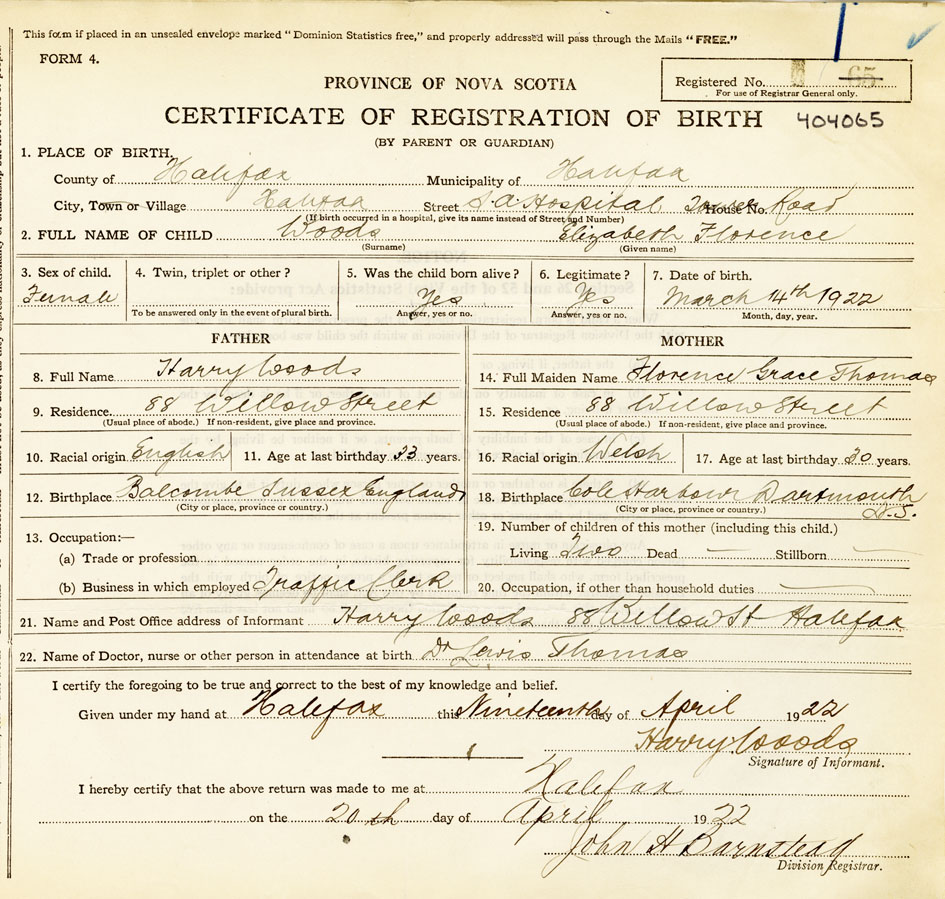 This form if placed in an unsealed envelope marked "Dominion Statistics free," and properly addressed will pass through the Mails "FREE."
FORM 4.
PROVINCE OF NOVA SCOTIA
Registered No. 65
For use of Registrar General only.
CERTIFICATE OF REGISTRATION OF BIRTH 404065
(BY PARENT OR GUARDIAN)
1. PLACE OF BIRTH.
County of Halifax Municipality of Halifax
City, Town or Village Halifax Street S.A. Hospital House No. Road
(If birth occurred in a hospital, give its name instead of Street and Number)
2. FULL NAME OF CHILD Woods Elizabeth Florence
(Surname) (Given name)
3. Sex of child. 4. Twin, triplet or other? 5. Was the child born alive? 6. Legitimate? 7. Date of birth.
Female Yes Yes March 14th 1922
To be answered only in the event of plural birth. Answer, yes or no. Answer, yes or no. Month, day, year.
FATHER
8. Full Name Harry Woods
9. Residence. 88 Willow Street
(Usual place of abode.) If non-resident, give place and province.
10. Racial origin English 11. Age at last birthday 33 years.
12. Birthplace Balcombe Sussex England
(City or place, province or country.)
13. Occupation:—
(a) Trade or profession
(b) Business in which employed Traffic Clerk
MOTHER
14. Full Maiden Name Florence Grace Thomas
15. Residence 88 Willow Street
(Usual place of abode.) If non-resident, give place and province.
16. Racial origin Welsh 17. Age at last birthday 30 years.
18. Birthplace Cole Harbour Dartmouth N.S.
(City or place, province or country.)
19. Number of children of this mother (including this child.)
Living Two Dead — Stillborn —
20. Occupation, if other than household duties —
21. Name and Post Office address of Informant Harry Woods 88 Willow St Halifax
22. Name of Doctor, nurse or other person in attendance at birth Dr Lewis Thomas
I certify the foregoing to be true and correct to the best of my knowledge and belief.
Given under my hand at Halifax this Nineteenth day of April 1922
Harry Woods
Signature of Informant.
I hereby certify that the above return was made to me at Halifax
on the 20th day of April 1922
John H Barnstead
Division Registrar.